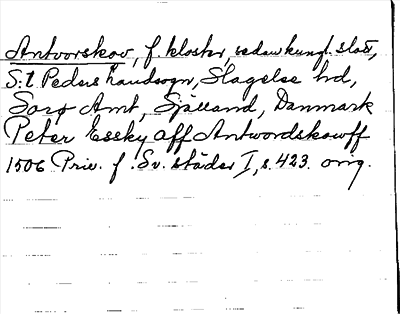 Antvorskov, f. kloster, sedan kungl. slott,
S:t Peders landsogn, Slagelse hd,
Sorø Amt, Sjælland, Danmark
Peter Essky aff Antwordskowff
1506 Priv. f. Sv. städer I, s. 423. orig.